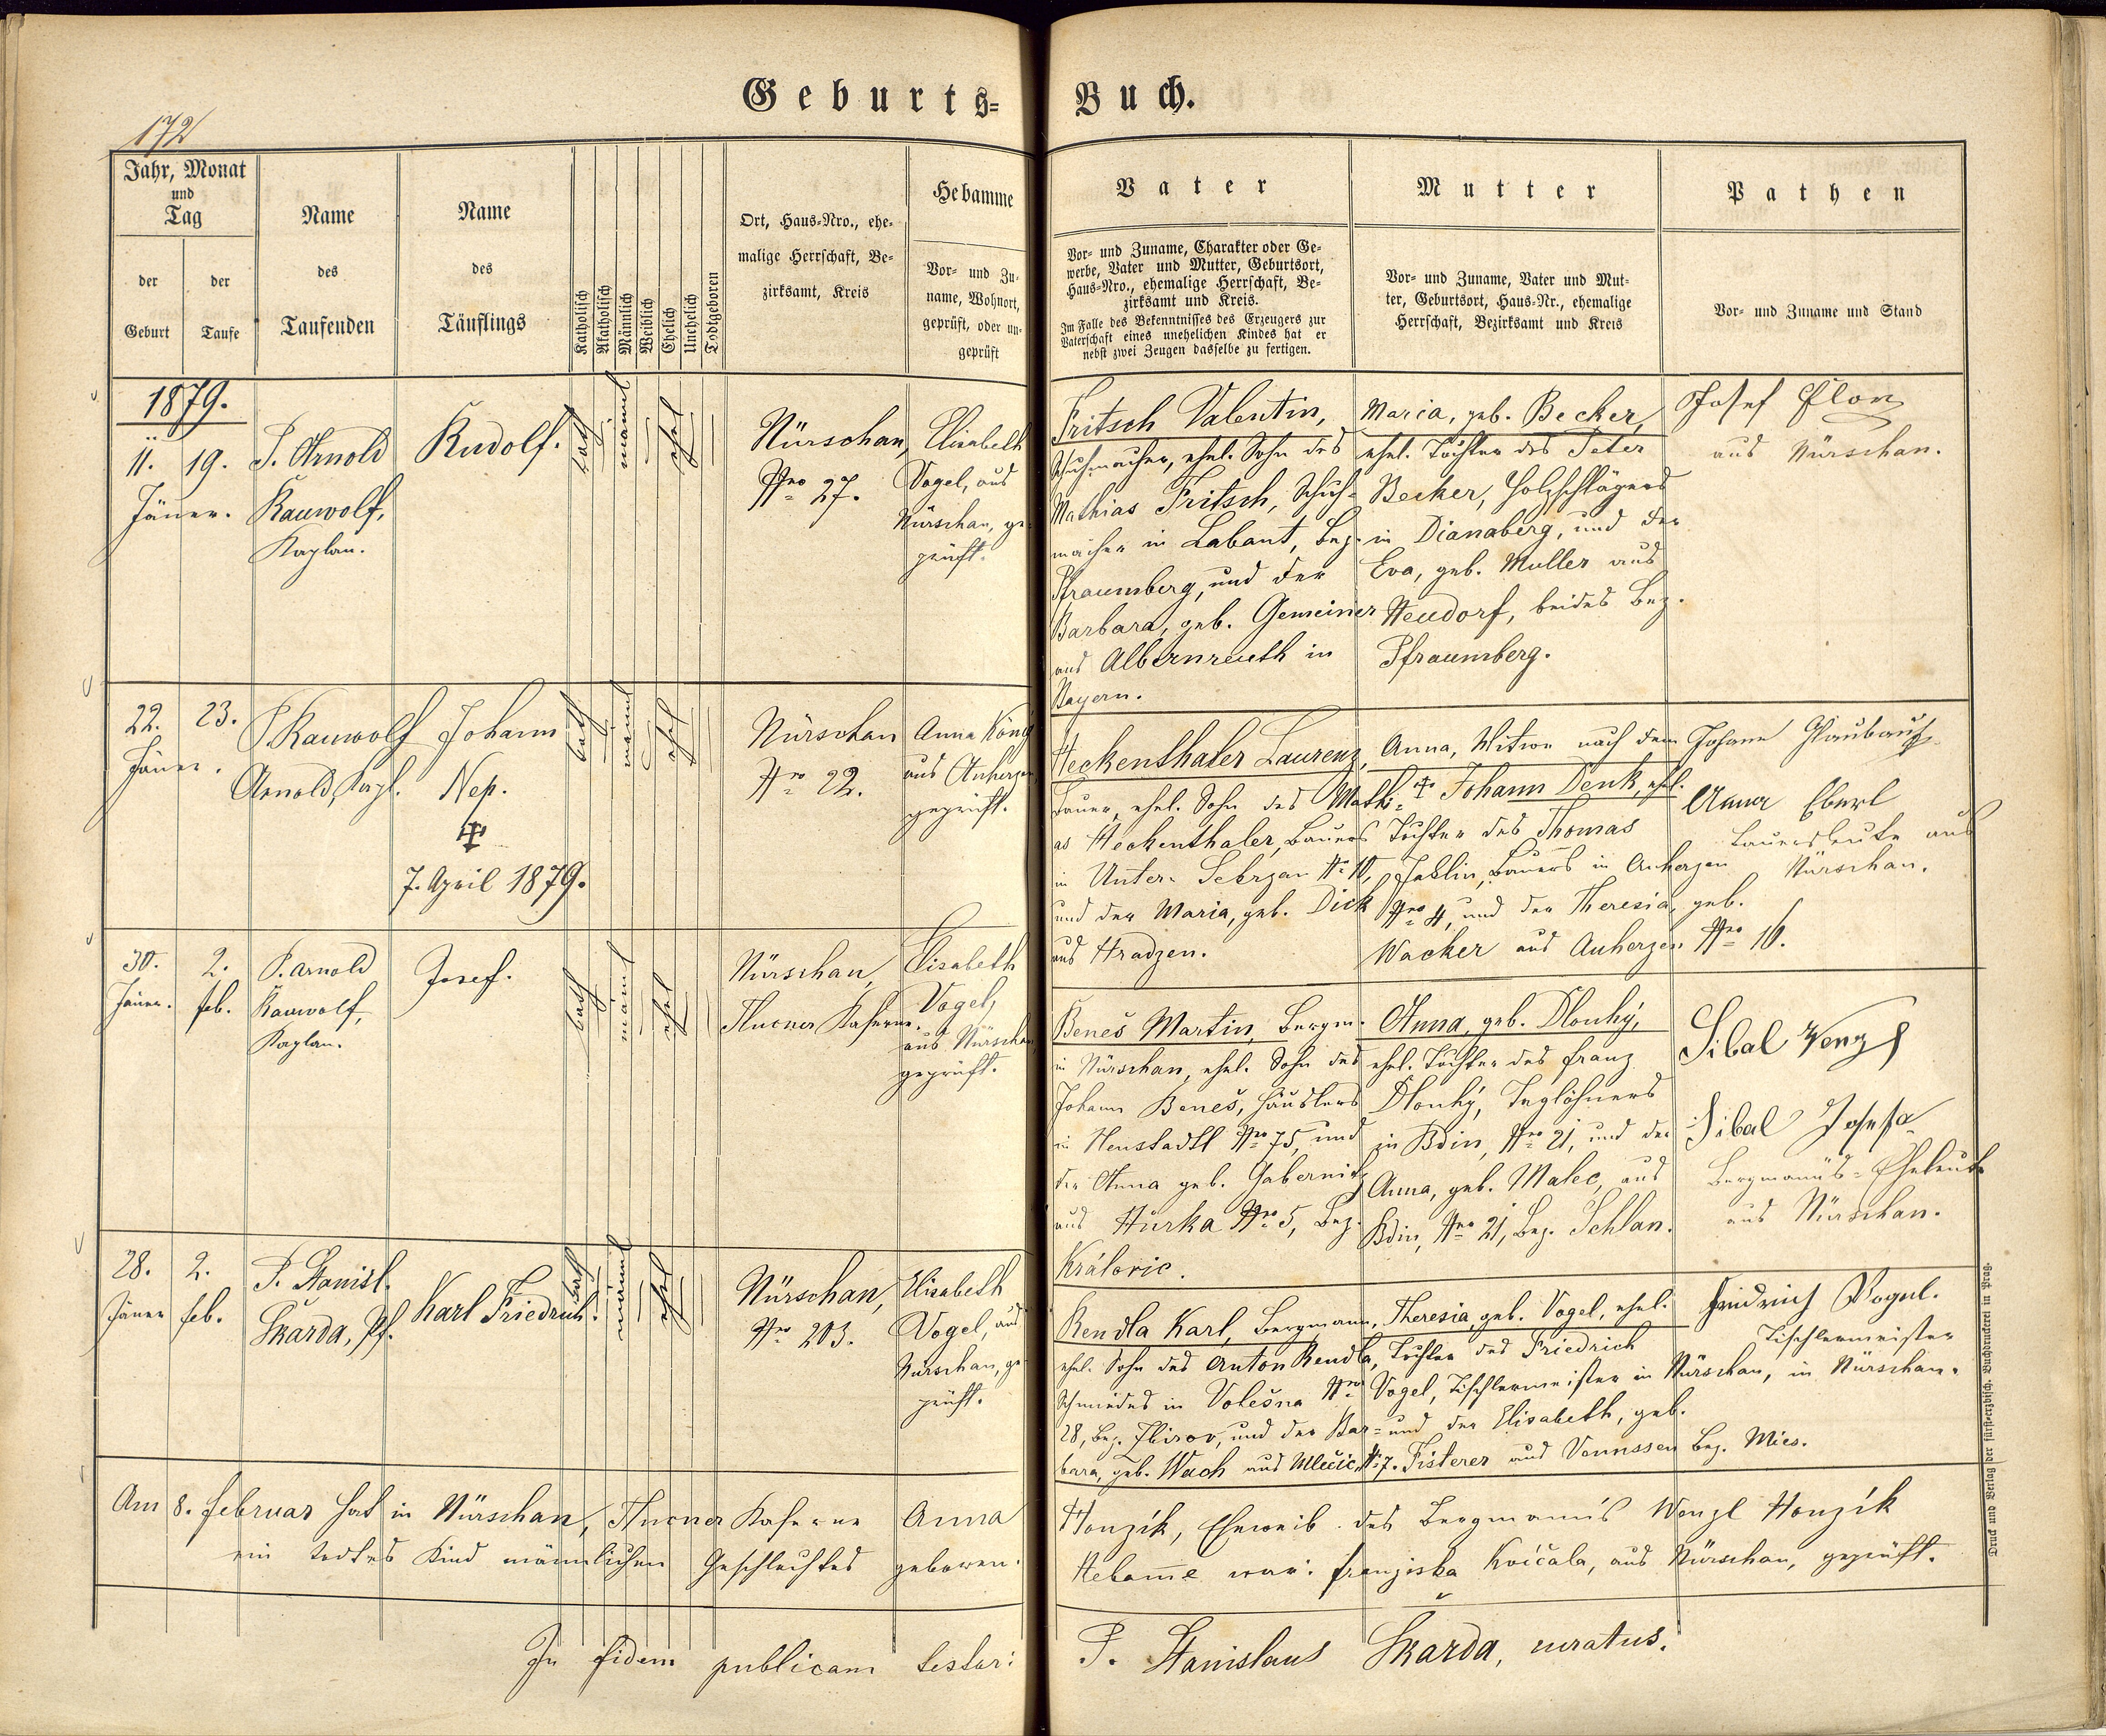 172
Geburts=
Buch.
Jahr, Monat
und
Tag
der
Geburt
der
Taufe
Name
des
Taufenden
Name
des
Täuflings
Katholisch
Akatholisch
Männlich
Weiblich
Ehelich
Unehelich
Todtgeboren
Ort, Haus-Nro., ehe-
malige Herrschaft, Be-
zirksamt, Kreis
Hebamme
Vor- und Zu-
name, Wohnort,
geprüft, oder un-
geprüft
Vater
Vor- und Zuname, Charakter oder Ge-
werbe, Vater und Mutter, Geburtsort,
Haus-Nro., ehemalige Herrschaft, Be-
zirksamt und Kreis.
Im Falle des Bekenntnisses des Erzeugers zur
Vaterschaft eines unehelichen Kindes hat er
nebst zwei Zeugen dasselbe zu fertigen.
Mutter
Vor- und Zuname, Vater und Mut-
ter, Geburtsort, Haus-Nr., ehemalige
Herrschaft, Bezirksamt und Kreis
Pathen
Vor- und Zuname und Stand
1879.
11.
Jänner.
19.
P. Arnold
Rauwolf,
Kaplan.
Rudolf.
kath
männl
ehel
Nürschan,
Nro 27.
Elisabeth
Vogel, aus
Nürschan, ge-
prüft.
Fritsch Valentin,
Schuhmacher, ehel. Sohn des
Mathias Fritsch, Schuh-
macher in Labant, Bez.
Pfraumberg, und der
Barbara, geb. Gemeiner
aus Albernreuth in
Bayern.
Maria, geb. Becker,
ehel. Tochter des Peter
Becker, Holzschlägers
in Dianaberg, und der
Eva, geb. Muller aus
Neudorf, beides Bez.
Pfraumberg.
Josef
aus Nürschan.
22.
Jäner.
23.
P. Rauwolf
Arnold, Kapl.
Johann
Nep.
7. April 1879.
kath
männl
ehel
Nürschan
Nro 22.
Anna König
aus Auherzen
geprüft.
Heckenthaler Laurenz,
Bauer, ehel. Sohn des Mathi-
as Heckenthaler, Bauers
in Unter-Sekrzan No 10,
und der Maria, geb. Dick
aus Hradzen.
Anna, Witwe nach dem
Johann Denk, ehel.
Tochter des Thomas
Bauers in Auherzen
Nro 4, und der Theresia, geb.
Wacker aus Auherzen Nro 16.
Johann
Anna Eberl
Bauersleute aus
Nürschan.
30.
Jänner.
2.
Feb.
P. Arnold
Rauwolf,
Kaplan.
Josef.
kath
männl
ehel
Nürschan,
Kaserne.
Elisabeth
Vogel,
aus Nürschan
geprüft.
Beneš Martin, Bergm.
in Nürschan, ehel. Sohn des
Johann Beneš, Häuslers
in Neustadtl Nro 75, und
der Anna geb. Gabernitz
aus Hurka Nro 5, Bez.
Královic.
Anna, geb. Dlouhý,
ehel. Tochter des Franz
Dlouhý, Taglöhners
in Bdin, Nro 21, und der
Anna, geb. Malec, aus
Bdin, Nro 21, Bez. Schlan.
Sibal Wenzl
Sibal Josefa
Bergmanns-Eheleute
aus Nürschan.
28.
Jäner
2.
Feb.
P. Stanisl.
Škarda, Pf.
Karl Friedrich.
kath
männl
ehel
Nürschan,
Nro 203.
Elisabeth
Vogel, aus
Nürschan, ge-
prüft.
Rendla Karl, Bergmann,
ehel. Sohn des Anton Rendla,
Schmiedes in Volešna Nro
28, Bez. Zbirov, und der Bar-
bara, geb. Wach aus Mlečic, No 7.
Theresia, geb. Vogel, ehel.
Tochter des Friedrich
Vogel, Tischlermeister in Nürschan,
und der Elisabeth, geb.
Fisterer aus Bez. Mies.
Friedrich Vogel.
Tischlermeister
in Nürschan.
Am 8. Februar hat in Nürschan, Kaserne Anna
Honzík, Eheweib des Bergmanns Wenzl Honzík
ein todtes Kind männlichen Geschlechtes geboren.
Hebamme war: Franziska Kvíčala, aus Nürschan, geprüft.
In fidem publicam testor:
P. Stanislaus Škarda, curatus.
Druck und Verlag der fürst-erzbisch. Buchdruckerei in Prag.